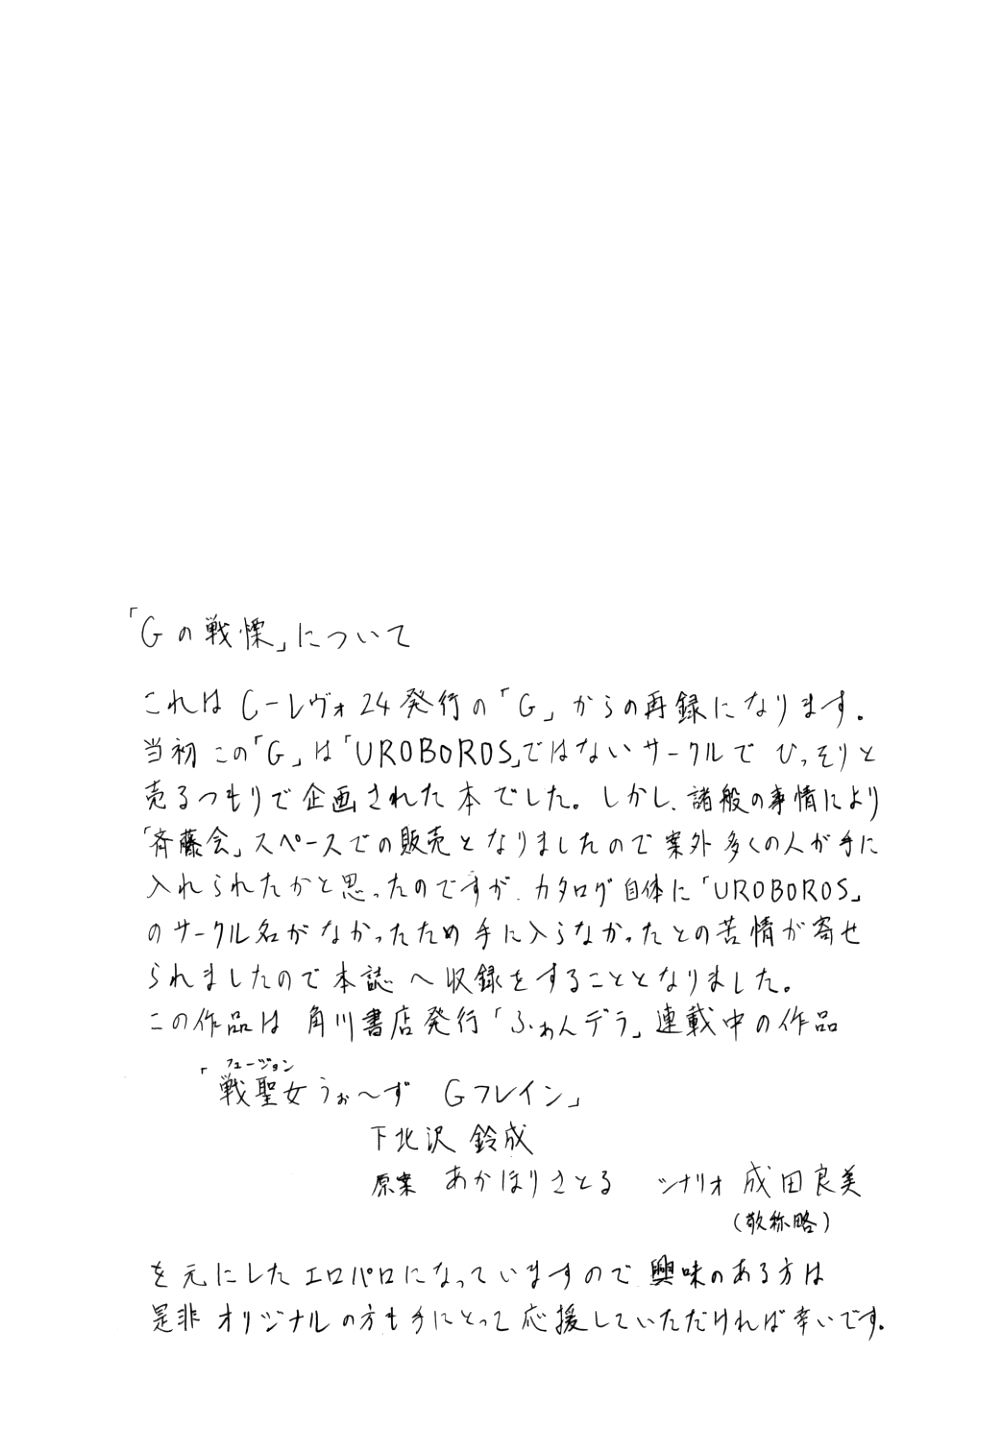 「Gの戦慄」について
これはC－レヴォ24発行の「G」からの再録になります。
当初この「G」は「UROBOROS」ではないサークルでひっそりと
売るつもりで企画された本でした。しかし、諸般の事情により
「斉藤会」スペースでの販売となりましたので案外多くの人が手に
入れられたかと思ったのですが、カタログ自体に「UROBOROS」
のサークル名がなかったため手に入らなかったとの苦情が寄せ
られましたので本誌へ収録をすることとなりました。
この作品は角川書店発行「ふぁんデラ」連載中の作品
フュージョン
「戦聖女うぉ〜ず Gフレイン」
下北沢 鈴成
原案 あかほりさとる シナリオ 成田良美
（敬称略）
を元にしたエロパロになっていますので興味のある方は
是非オリジナルの方も手にとって応援していただければ幸いです。